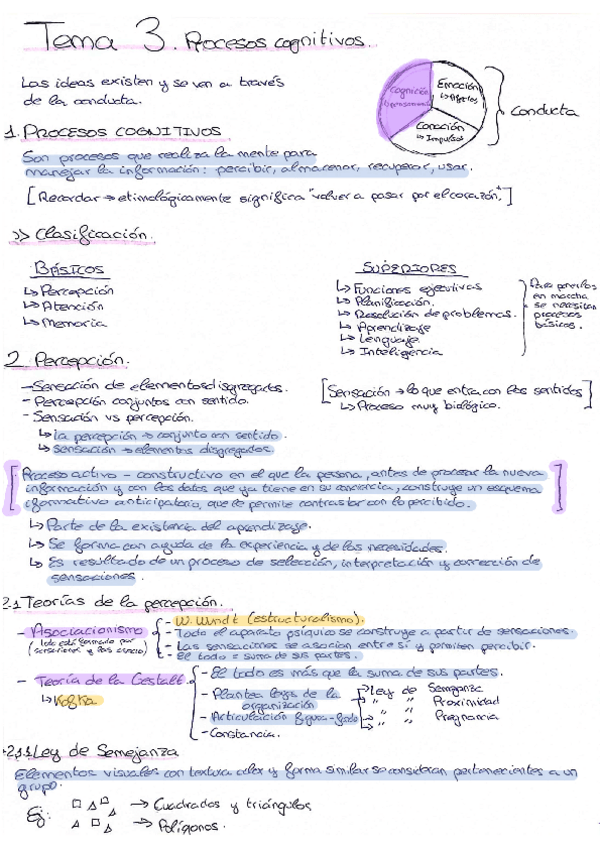 Tema 3. Procesos cognitivos.
Las ideas existen y se ven a través
de la conducta.
Cognición
Emoción
↳ Afectos
Conación
↳ Impulsos
Conducta
1. PROCESOS COGNITIVOS
Son procesos que realiza la mente para
manejar la información: percibir, almacenar, recuperar, usar.
[Recordar → etimológicamente significa "volver a pasar por el corazón"]
>> Clasificación.
BÁSICOS
↳ Percepción
↳ Atención
↳ Memoria
SUPERIORES
↳ Funciones ejecutivas
↳ Planificación.
↳ Resolución de problemas.
↳ Aprendizaje
↳ Lenguaje
↳ Inteligencia
Para ponerlos
en marcha
se necesitan
procesos
básicos.
2. Percepción.
- Sensación de elementos disgregados.
- Percepción conjuntos con sentido.
- Sensación vs percepción.
↳ la percepción → conjunto con sentido.
↳ sensación → elementos disgregados.
[Sensación → lo que entra con los sentidos]
↳ Proceso muy biológico.
[Proceso activo - constructivo en el que la persona, antes de procesar la nueva
información y con los datos que ya tiene en su conciencia, construye un esquema
informativo anticipatorio, que le permite contrastar con lo percibido.]
↳ Parte de la existencia del aprendizaje.
↳ Se forma con ayuda de la experiencia y de las necesidades.
↳ Es resultado de un proceso de selección, interpretación y corrección de
sensaciones.
2.1 Teorías de la percepción.
- Asociacionismo
(todo está formado por
sensaciones
- W. Wundt (estructuralismo).
- Todo el aparato psíquico se construye a partir de sensaciones.
- Las sensaciones se asocian entre sí y permiten percibir.
- El todo = suma de sus partes.
- Teoría de la Gestalt
↳ Kofka
- El todo es más que la suma de sus partes.
- Plantea leyes de la
organización
- Articulación figura-fondo
- Constancia.
→ Ley de Semejanza
→ " " Proximidad
→ " " Pregnancia
2.1.1 Ley de Semejanza
Elementos visuales con textura color y forma similar se consideran pertenecientes a un
grupo.
Ej:
→ Cuadrados y triángulos
→ Polígonos.